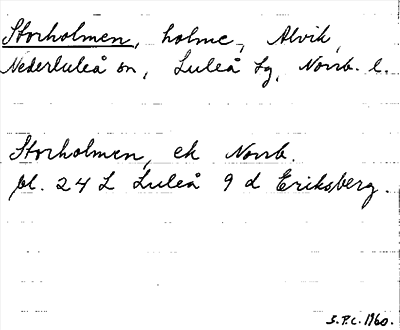 Storholmen, holme, Alvik,
Nederluleå sn, Luleå tg, Norrb. l.
Storholmen, ek Norrb.
bl. 24 L Luleå 9 d Eriksberg.
S.P.C. 1960.